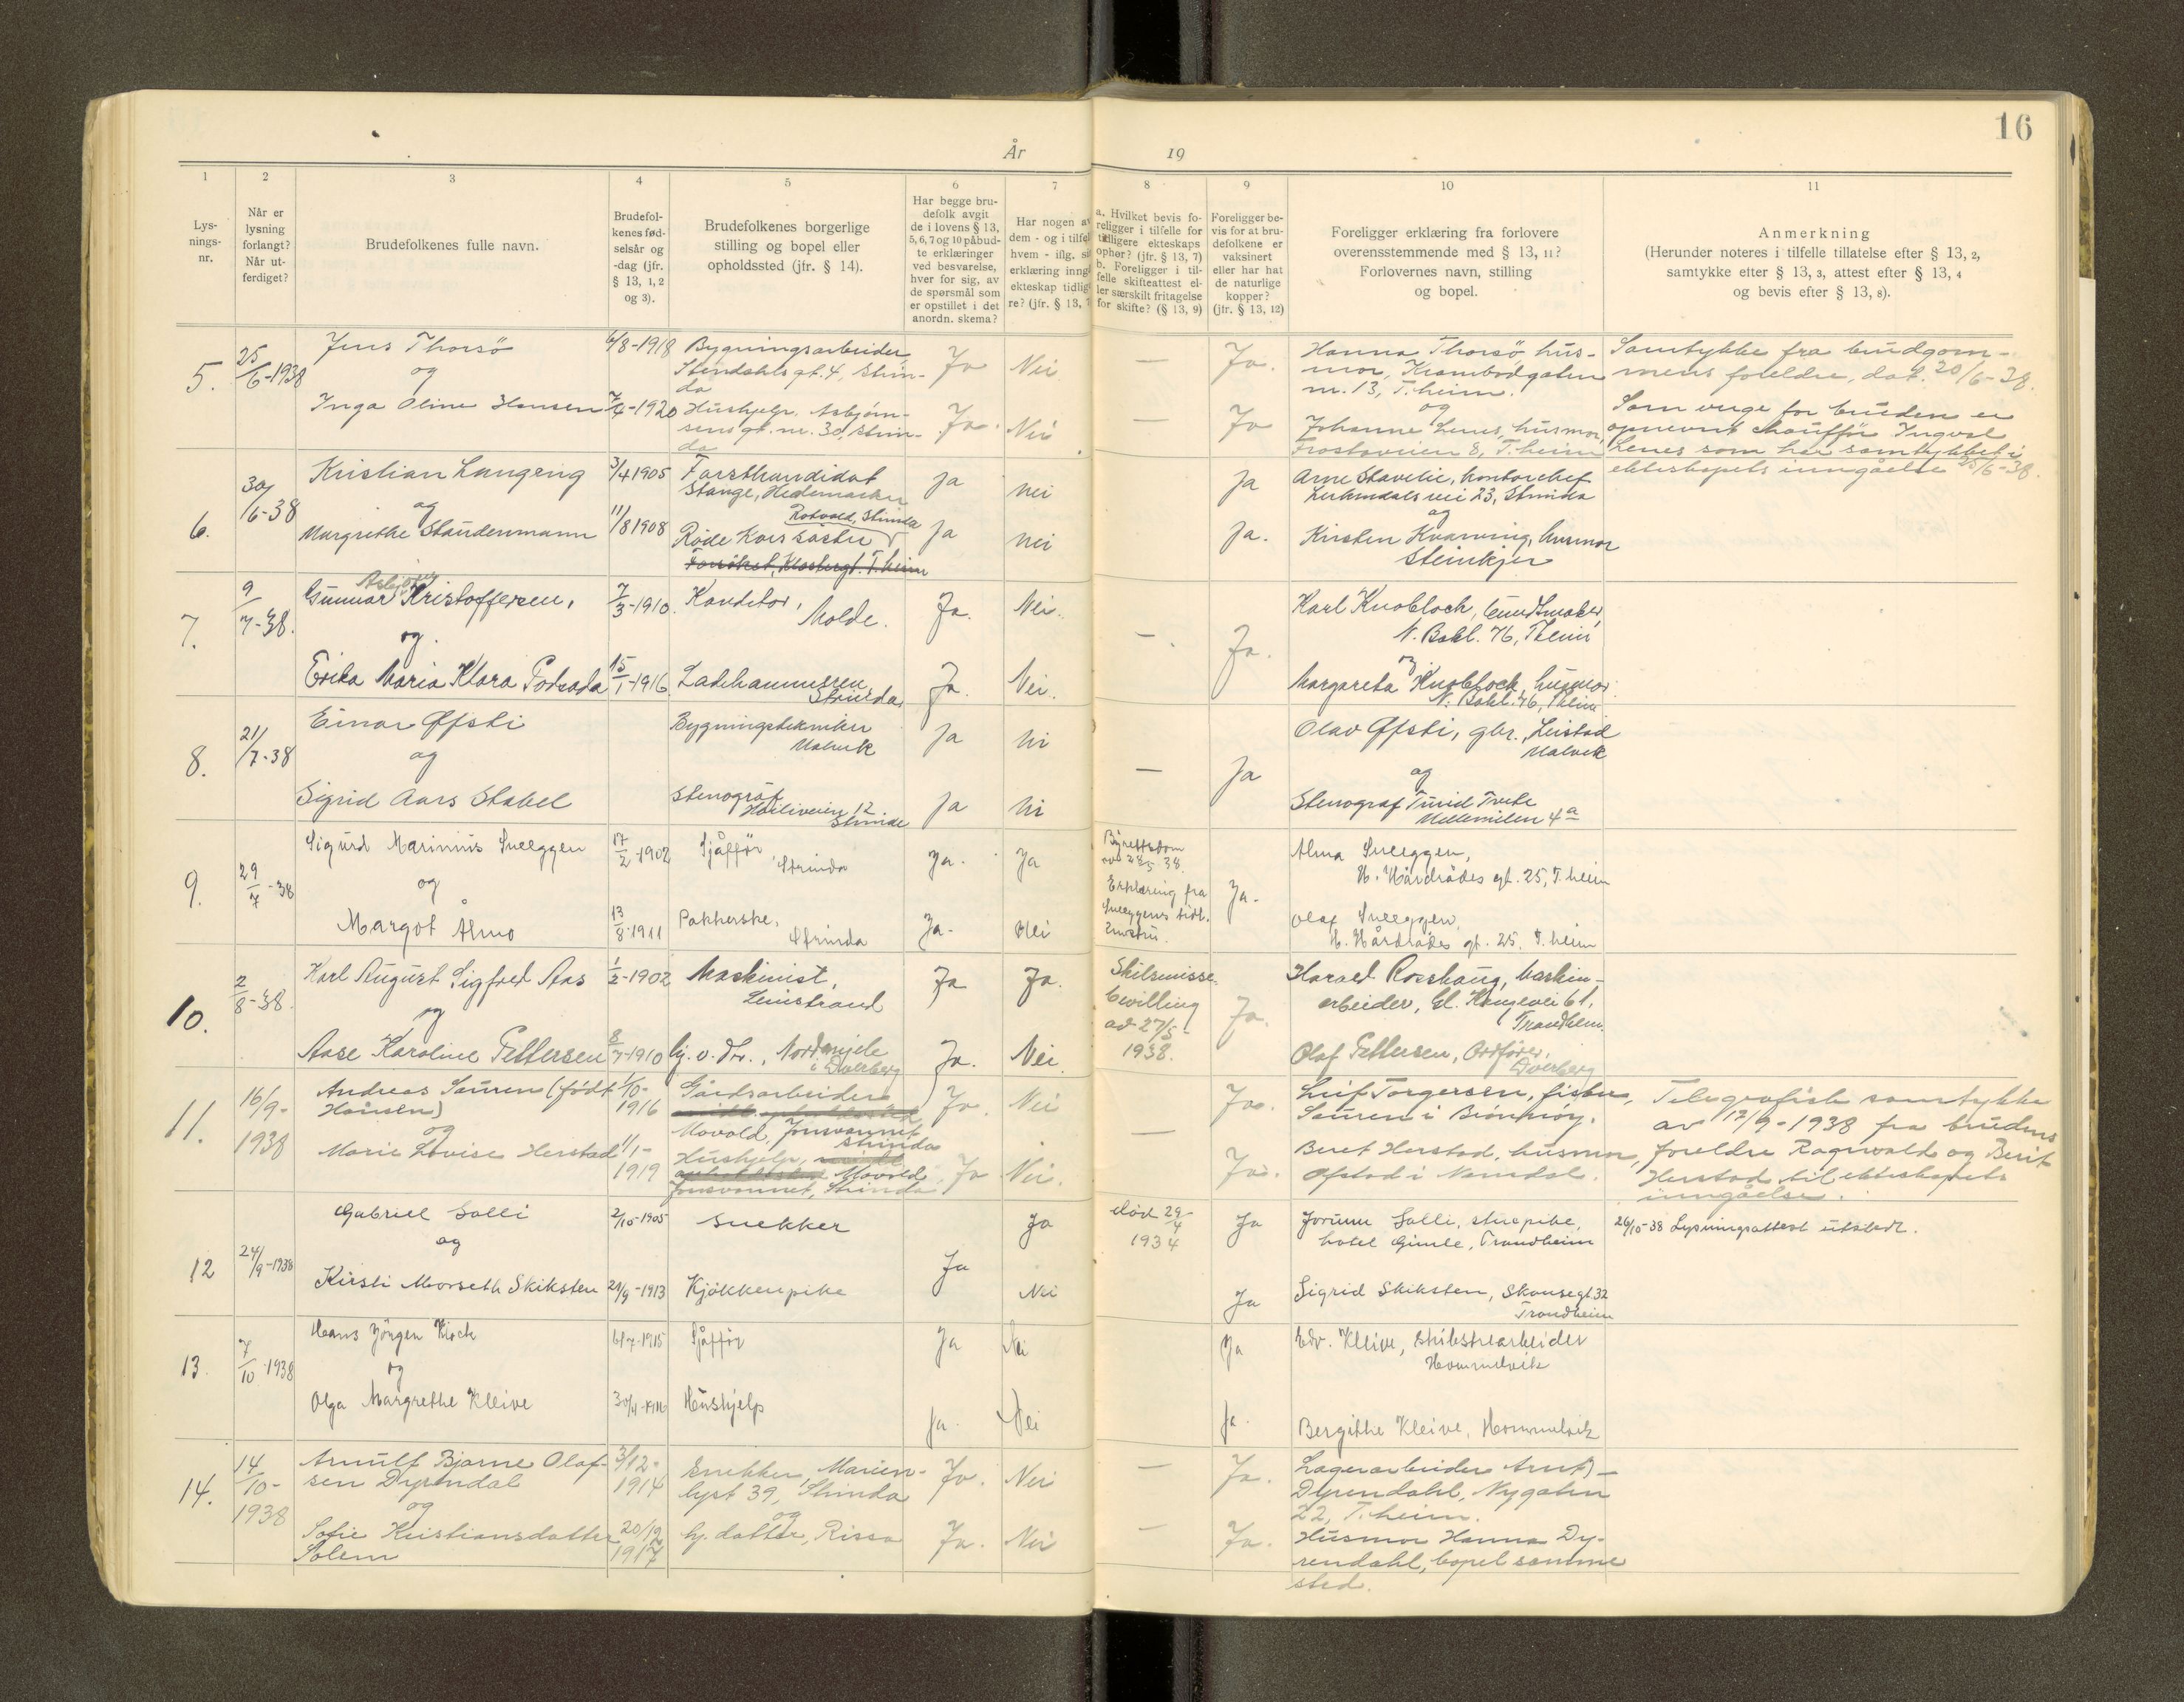 16
År 19
1 2 3 4 5 6 7 8 9 10 11
Lys-
nings-
nr.
Når er
lysning
forlangt?
Når ut-
ferdiget?
Brudefolkenes fulle navn.
Brudefol-
kenes fød-
selsår og
-dag (jfr.
§ 13, 1, 2
og 3).
Brudefolkenes borgerlige
stilling og bopel eller
opholdssted (jfr. § 14).
Har begge bru-
defolk avgit
de i lovens § 13,
5, 6, 7 og 10 påbud-
te erklæringer
ved besvarelse,
hver for sig, av
de spørsmål som
er opstillet i det
anordn. skema?
Har nogen av
dem - og i tilfel
hvem - iflg.
erklæring inngå
ekteskap tidlig
re? (jfr. § 13, 7
a. Hvilket bevis fo-
religger i tilfelle for
tidligere ekteskaps
ophør? (jfr. § 13, 7)
b. Foreligger i til-
felle skifteattest el-
ler særskilt fritagelse
for skifte? (§ 13, 9)
Foreligger be-
vis for at bru-
defolkene er
vaksinert
eller har hat
de naturlige
kopper?
(jfr. § 13, 12)
Foreligger erklæring fra forlovere
overensstemmende med § 13, 11?
Forlovernes navn, stilling
og bopel.
Anmerkning
(Herunder noteres i tilfelle tillatelse efter § 13, 2,
samtykke efter § 13, 3, attest efter § 13, 4
og bevis efter § 13, 8).
5.
25/6-1938
Jens Thorsö
og
Inga Oline Hansen
6/8-1918
7/4-1920
Bygningsarbeider,
Stendahls gt. 4, Strin-
da
Hushjelp, Asbjørn-
sens gt. nr. 30, Strin-
da
Ja Nei
Ja. Nei
— Ja.
— Ja
Hanna Thorsö, hus-
mor, Krambodgaten
nr. 13, T.heim.
og
Johanne Lenes, husmor,
Frostaveien 8, T.heim
Samtykke fra brudgom-
mens foreldre, dat. 20/6-38.
Som verge for bruden er
opnevnt chauffør Ingval
Lenes som har samtykket i
ekteskapets inngåelse 25/6-38.
6.
30/6-38
Kristian Langeng
og
Margrethe Staudenmann
3/4 1905
11/8 1908
Forstkandidat
Stange, Hedemarken
Rotvold, Strinda
Røde Kors søster
Ja nei
Ja nei
Ja
Ja.
Arne Stavelie, kontorchef
Lerkendalsvei 23, Strinda
og
Kirsten Kvarving, husmor
Steinkjer
7.
9/7-38.
Asbjørn
Gunnar Kristoffersen,
og.
Erika Maria Klara Podsada
7/3-1910.
15/1-1916
Konditor,
Molde.
Ladehammeren
Strinda
Ja. Nei.
Ja. Nei.
—. Ja.
Karl Knobloch, buntmaker,
N. Bakl. 76, Th.eim
og
Margareta Knobloch, husmor
N. Bakl. 76, Th.eim
8.
21/7-38
Einar Øfsti
og
Sigrid Aars Stabel
Bygningstekniker
Malvik
Stenograf
12.
Strinda
Ja
Ja
— Ja
Olav Øfsti, gbr., Leistad
Malvik
og
Stenograf Turid Tveta
4 a
9.
29/7-38
Sigurd Marinius Sneeggen
og
Margot Almo
17/2-1902
13/8-1911
Sjåfför
Strinda
Pakkerske,
Strinda
Ja. Ja
Ja. Nei
Byrettsdom
av 28/5 38.
Erklæring fra
Sneeggens tidl.
hustru.
Ja.
Alma Sneeggen,
H. Hårdrådes gt. 25, T.heim
Olaf Sneeggen,
H. Hårdrådes gt. 25, T.heim
10.
2/8-38.
Karl August Sigfred Aas
og
Aase Karoline Pettersen
1/2-1902
8/7-1910
Maskinist,
Leinstrand
Hj. v. Fr., Nordmjele
i Dverberg
Ja Ja.
Ja. Nei.
Skilsmisse-
bevilling
av 27/5-
1938.
Ja.
Harald Rosshaug, maskin-
arbeider, Gl. Kongevei 61,
Trondheim.
Olaf Pettersen, Ordfører,
Dverberg
11.
16/9-
1938
Andreas Sauren (født
Hansen)
og
Marie Lovise Herstad
1/10-
1916
11/1-
1919
Gårdsarbeider
Movold, Jonsvannet
Strinda
Hushjelp,
Movold
Jonsvannet, Strinda
Ja. Nei
Ja Nei.
—
Ja.
Ja.
Leif Torgersen, fisker,
Sauren i Brønnøy.
Beret Herstad, husmor,
Ofstad i Namdal.
Telegrafisk samtykke
av 17/9-1938 fra brudens
foreldre Ragnvald og Berit
Herstad til ekteskapets
inngåelse.
12
24/9-1938
Gabriel Solli
og
Kirsti Morseth Skiksten
2/10-1905
29/9-1913
Snekker
Kjøkkenpike
Ja
Ja
Nei
død 29/4
1934
Ja
Ja
Jorunn Solli, stuepike,
hotel Gimle, Trondheim
Sigrid Skiksten, Skansegt. 32
Trondheim
26/10-38 Lysningsattest utstedt.
13.
7/10-1938
Hans Jörgen Kirch
og
Olga Margrethe Kleive
6/7-1915
Sjåför
Hushjelp
Ja Nei
Ja. Nei
Ja
Ja.
Edv. Kleive,
Hommelvik
Bergithe Kleive, Hommelvik
14.
14/10-
1938
Arnulf Bjarne Olaf-
sen Dyrendal
og
Sofie Kristiansdatter
Solem
3/12-
1914
20/12
1917
Snekker, Marien-
lyst 39, Strinda
og
hj. datter, Rissa
Ja. Nei
Ja. Nei
— Ja.
— Ja.
Lagerarbeider Arnt
Dyrendahl, Nygaten
22, T.heim.
Husmor Hanna Dy-
rendahl, bopel samme
sted.